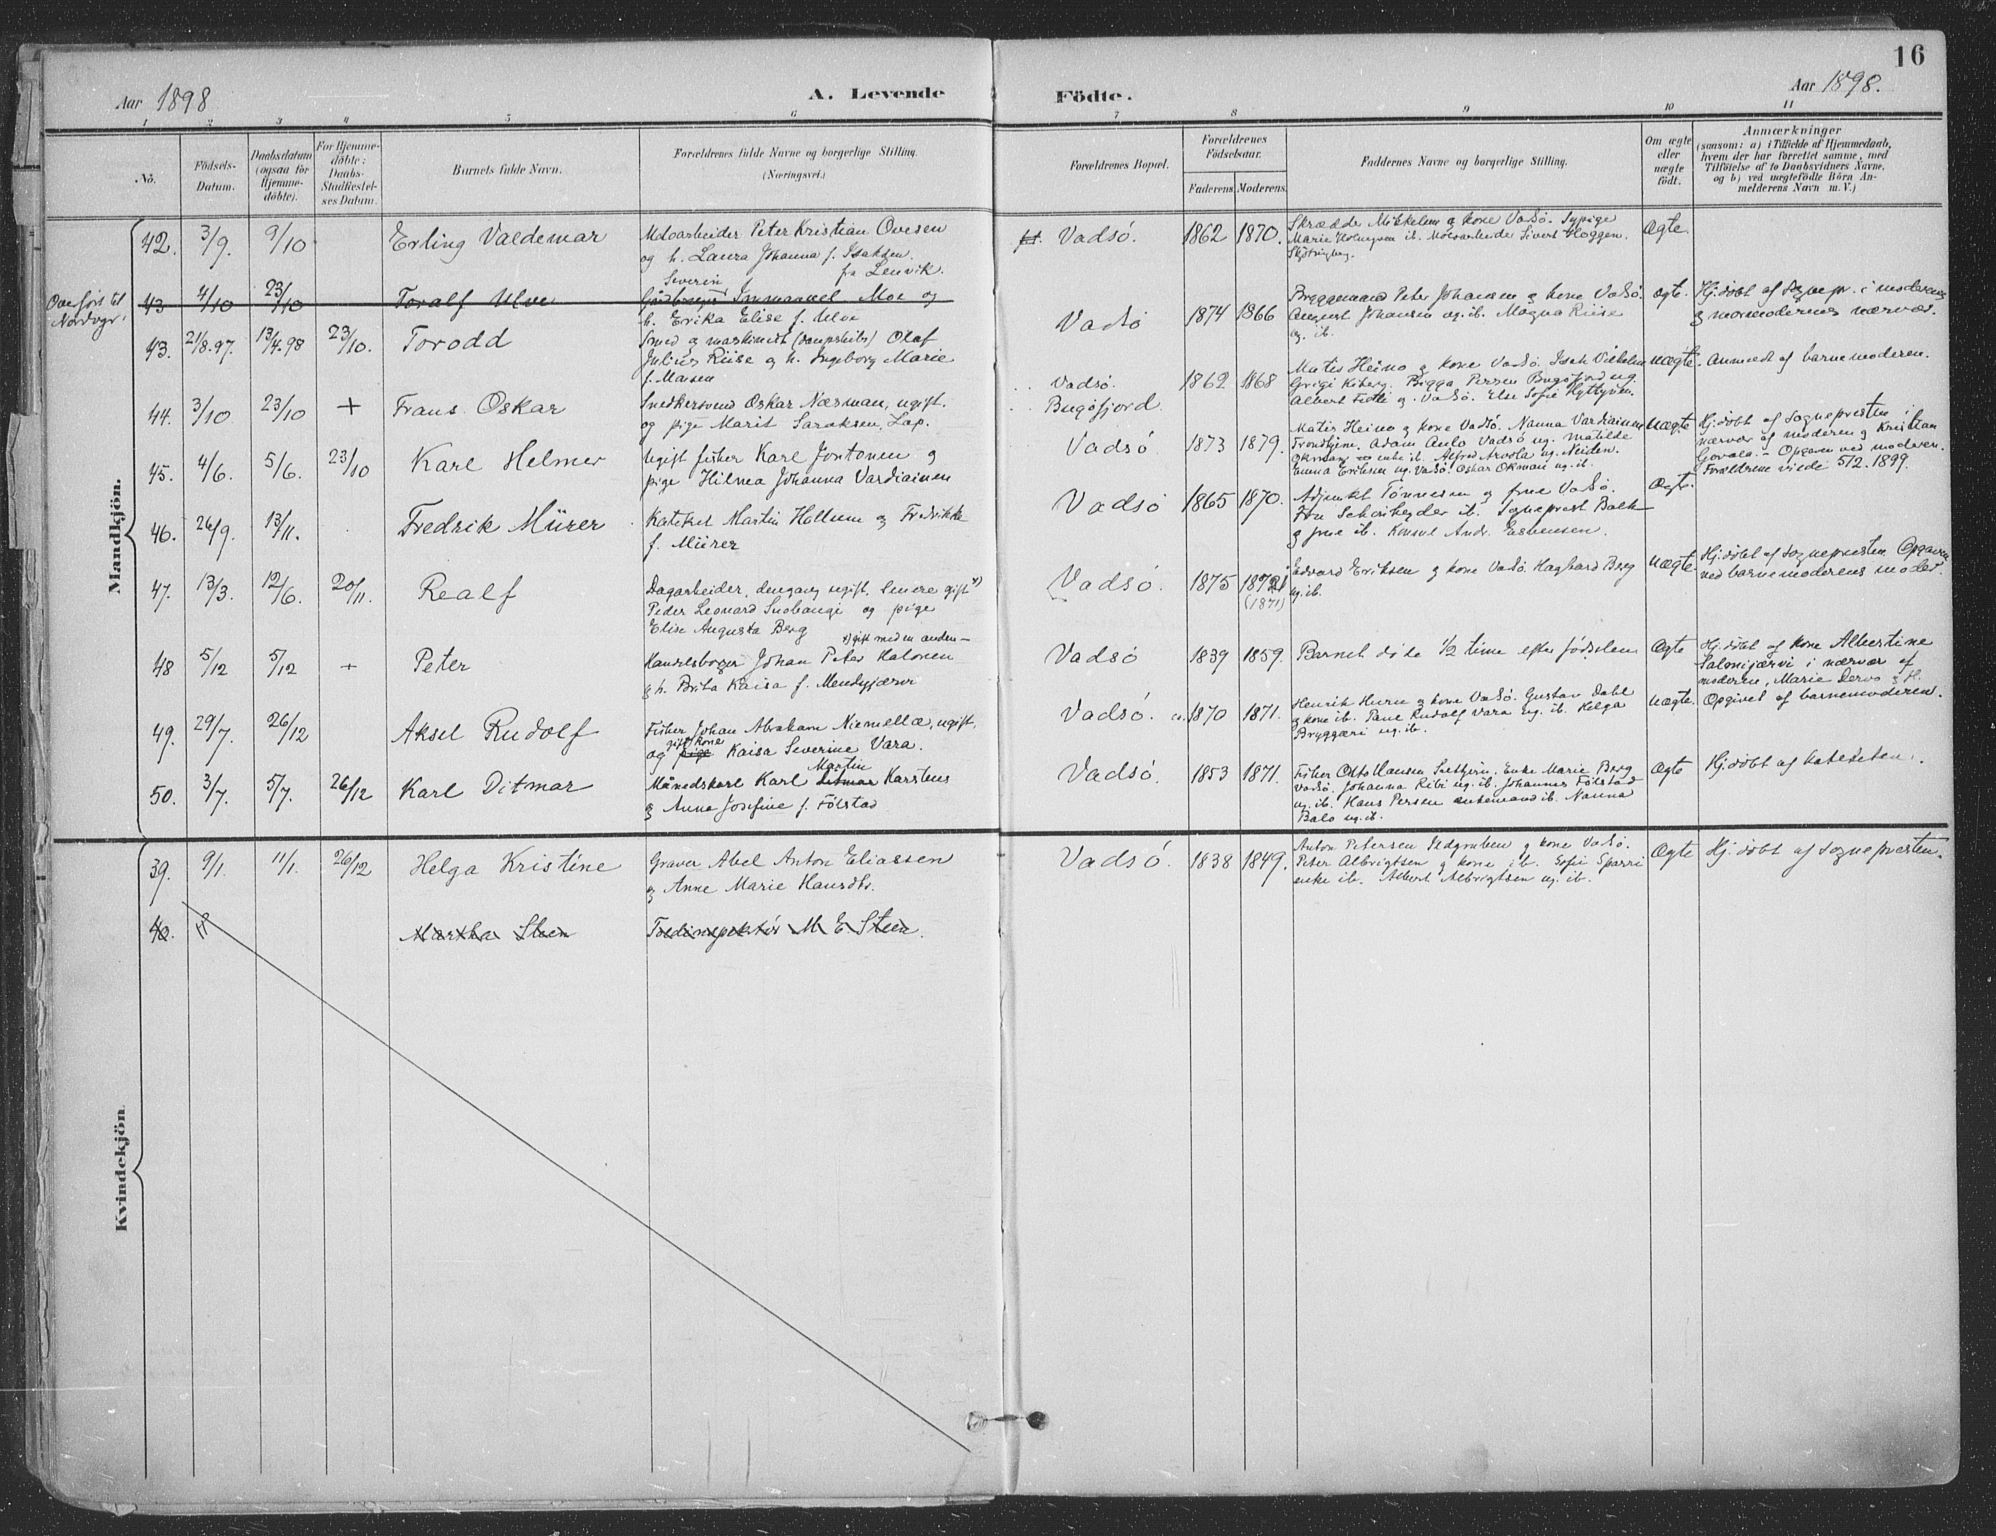 16
Aar 1898
A. Levende
Fødte.
Aar 1898.
1 2 3 4 5 6 7 8 9 10 11
No.
Födsels-Datum.
Daabsdatum (ogsaa for Hjemme-döbte).
For Hjemme-döbte: Daabs-Stadfæstel-ses Datum.
Barnets fulde Navn.
Forældrenes fulde Navne og borgerlige Stilling.
(Næringsvei.)
Forældrenes Bopæl.
Forældrenes Födselsaar.
Faderens. Moderens.
Faddernes Navne og borgerlige Stilling.
Om ægte eller uægte født.
Anmærkninger
(saasom: a) i Tilfælde af Hjemmedaab,
hvem der har forrettet samme, med
Tilföielse af to Daabsvidners Navne,
og b) ved uægtefödte Börn An-
melderens Navn m. V.)
Mandkjön.
42. 3/9. 9/10 Erling Valdemar
Moloarbeider Peter Kristian Ovesen
og h. Laura Johanna f. Isaksen.
fr Lenvik.
Vadsö. 1862 1870.
Skrædder Mikkelsen & kone Vadsö. Sypige
Marie Holmgren ib. Moloarbeider Sivert Hoggen.
Ægte.
Overført til
Nordvgr.
43 4/10 23/10 Toralf Ulve
Severin
Gårdbruger Immanuel Moe og
h. Erika Elise f. Ulve
43. 21/8.97. 13/4.98 23/10. Torodd
Smed og maskinist (dampskibs) Olaf
Julius Riise og h. Ingeborg Marie
f. Masen
Vadsö 1874 1866
Bryggemand Peter Johansen & kone Vadsö.
August Johansen ug. ib. Magna Riise
ug. ib.
ægte.
Hj.døbt af Sognepr. i moderens
& mormoderens nærvær.
44. 3/10 23/10 + Frans Oskar
Snedkersvend Oskar Næsman, ugift.
og pige Marit Saraksen, Lap.
Vadsö.
Bugöfjord
1862 1868
Matis Heino & kone Vadsö. Isak Vilhelm
Grigi Kiberg. Bigga Persen Bugöfjord ug.
uægte. Anmeldt af barnemoderen.
45. 4/6. 5/6. 23/10 Karl Helmer
Ugift fisker Karl Jontonen &
pige Hilma Johanna Vardiainen
Vadsö 1873 1879.
Matis Heino & kone Vadsö. Nanna Vardiainen
Trondhjem, Adam Aulo Vadsö ug. Matilde
Okman enke ib. Alfred Arvola ug. Neiden.
Emma Eriksen ug. Vadsö. Oskar Okman ug. ib.
uægte
Hj.døbt af Sognepresten i
nærvær af moderen & Kristian
Govala. - Opgaven ved moderen.
Forældrene viede 5/2. 1899.
46. 26/9. 13/11. Fredrik Mürer
Kateket Martin Hallum & Fredrikke
f. Mürer
Vadsö 1865 1870.
Adjunkt Tönnesen & frue Vadsö.
Sogneprest Balke
& frue ib. Konsul Andr. Esbensen.
Ægte.
47. 13/3. 12/6. 20/11. Realf
Dagarbeider, dengang ugift, senere gift x)
Peder Leonard Snobangi og pige
Elise Augusta Berg
x) gift med en anden -
Vadsö. 1875 1872
(1871)
Edvard Eriksen & kone Vadsö. Hagbard Berg
ug. ib.
uægte.
Hj.døbt af Sognepresten. Opgaven
ved barnemoderens moder.
48 5/12 5/12 + Peter
Handelsborger Johan Peter Halonen
& h. Brita Kaisa f. Mendyjærvi
Vadsö 1839 1859.
Barnet döde 1/2 time efter födselen
Ægte
Hj.døbt af kone Albertine
Salonijærvi i nærvær af
moderen, Marie Dervo & H.
49. 29/7. 26/12 Aksel Rudolf
Fisker Johan Abraham Niemellæ, ugift,
gift kone
og pige Kaisa Severine Vara.
Vadsö. 1870 1871.
Henrik Huru & kone Vadsö. Gustav Dahl
& kone ib. Paul Rudolf Vara ug. ib. Helga
Bryggæri ug. ib.
uægte. Opgivet af barnemoderen.
50. 3/7. 5/7. 26/12 Karl Ditmar
Martin
Månedskarl Karl Ditmar Karstens
& Anna Josefine f. Fölstad
Vadsö. 1853 1871.
Fisker Otto Hansen. Enke Marie Berg
Vadsö. Johanna Ribi ug. ib. Johannes Fölstad
ug. ib. Hans Persen enkemand ib. Nanna
Balo ug. ib.
Ægte Hj.døbt af kateketen.
Kvindekjön.
39. 9/1. 11/1. 26/12 Helga Kristine
Graver Abel Anton Eliassen
& Anne Marie Hansdtr.
Vadsö. 1838 1849.
Anton Petersen Pedgruben & kone Vadsö.
Peter Albrigtsen & kone ib. Sofie Sparri
enke ib. Albert Albrigtsen ug. ib.
Ægte Hj.døbt af Sognepresten.
40. Martha Steen
Toldinspektör M. E. Steen.